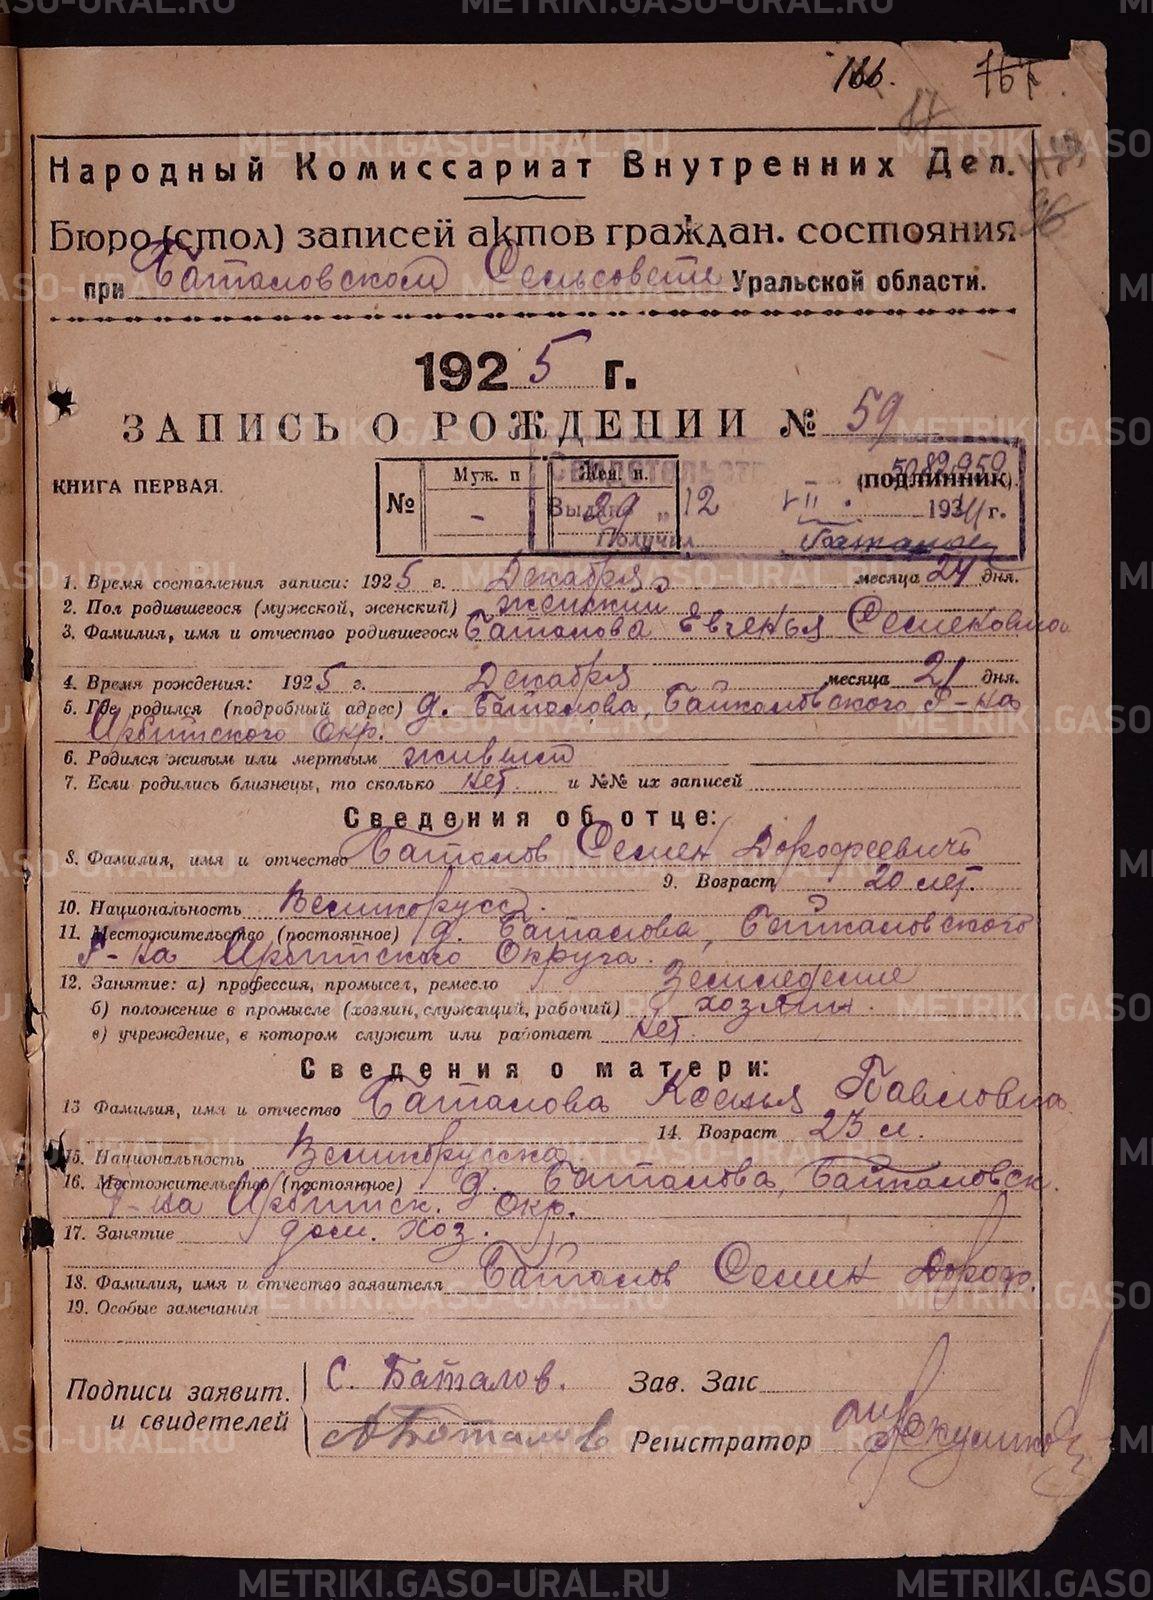 166. 167
17
Народный Комиссариат Внутренних Дел.
Бюро (стол) записей актов граждан. состояния
при Баталовском Сельсовете Уральской области.
1925 г.
ЗАПИСЬ О РОЖДЕНИИ № 59
КНИГА ПЕРВАЯ.
№ Муж. п Жен. п. (подлинник).
- 29
Свидетельст 5082950
Выдано „ 12 VII 1941 г.
Получил
1. Время составления записи: 1925 г. Декабря месяца 24 дня.
2. Пол родившегося (мужской, женский) женский
3. Фамилия, имя и отчество родившегося Баталова Евгенья Семеновна
4. Время рождения: 1925 г. Декабря месяца 21 дня.
5. Где родился (подробный адрес) д. Баталова, Байкаловского Р-на
Ирбитского Окр.
6. Родился живым или мертвым живым
7. Если родились близнецы, то сколько нет. и №№ их записей
Сведения об отце:
8. Фамилия, имя и отчество Баталов Семен Дорофеевичь
9. Возраст 20 лет.
10. Национальность Великорусс.
11. Местожительство (постоянное) д. Баталова, Байкаловского
Р-на Ирбитского Округа.
12. Занятие: а) профессия, промысел, ремесло Земледелие
б) положение в промысле (хозяин, служащий, рабочий) хозяин.
в) учреждение, в котором служит или работает нет.
Сведения о матери:
13 Фамилия, имя и отчество Баталова Ксенья Павловна
14. Возраст 23 л.
15. Национальность Великорусска
16. Местожительство (постоянное) д. Баталова, Байкаловск.
Р-на Ирбитск. Окр.
17. Занятие дом. хоз.
18. Фамилия, имя и отчество заявителя Баталов Семен Дороф.
19. Особые замечания
Подписи заявит. С. Баталов. Зав. Загс
и свидетелей Регистратор
METRIKI.GASO-URAL.RU